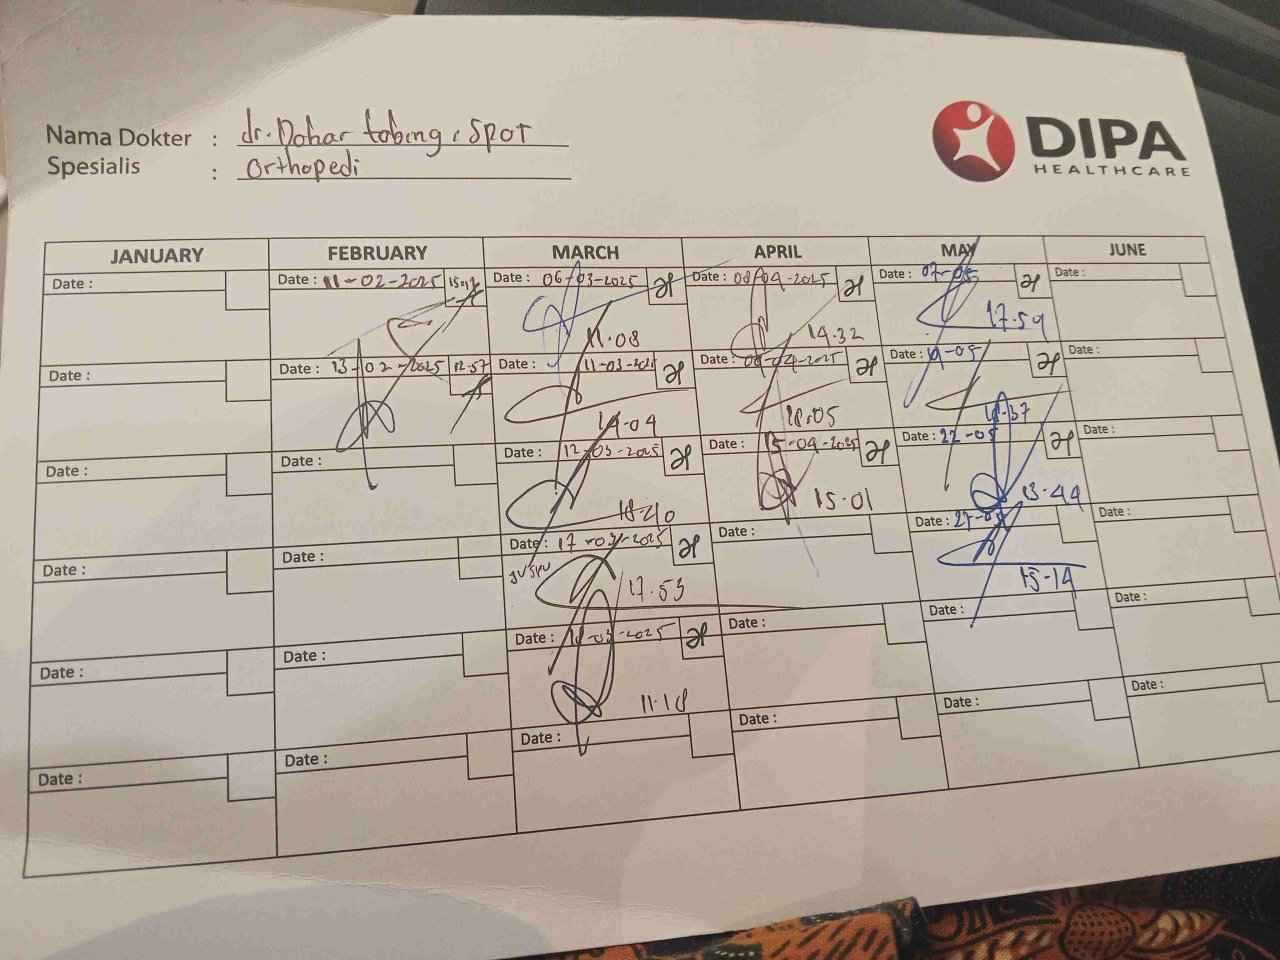 Nama Dokter : dr. Dohar tobing, SpOT
Spesialis : Orthopedi
DIPA
HEALTHCARE
JANUARY FEBRUARY MARCH APRIL MAY JUNE
Date : Date : 11-02-2025 Date : 06-03-2025 Date : 08-04-2025 Date : 07-05 Date :
11.08 14.32 17.59
Date : Date : 13-02-2025 12.57 Date : 11-03-2025 Date : Date : Date :
14-04 18.05
Date : Date : Date : 12-03-2025 Date : 15-04-2025 Date : 22-05 Date :
15.01 13-44
Date : Date : Date : 17-03-2025 Date : Date : Date :
17.53 15-14
Date : Date : Date : Date : Date : Date :
11.18
Date : Date : Date : Date : Date : Date :